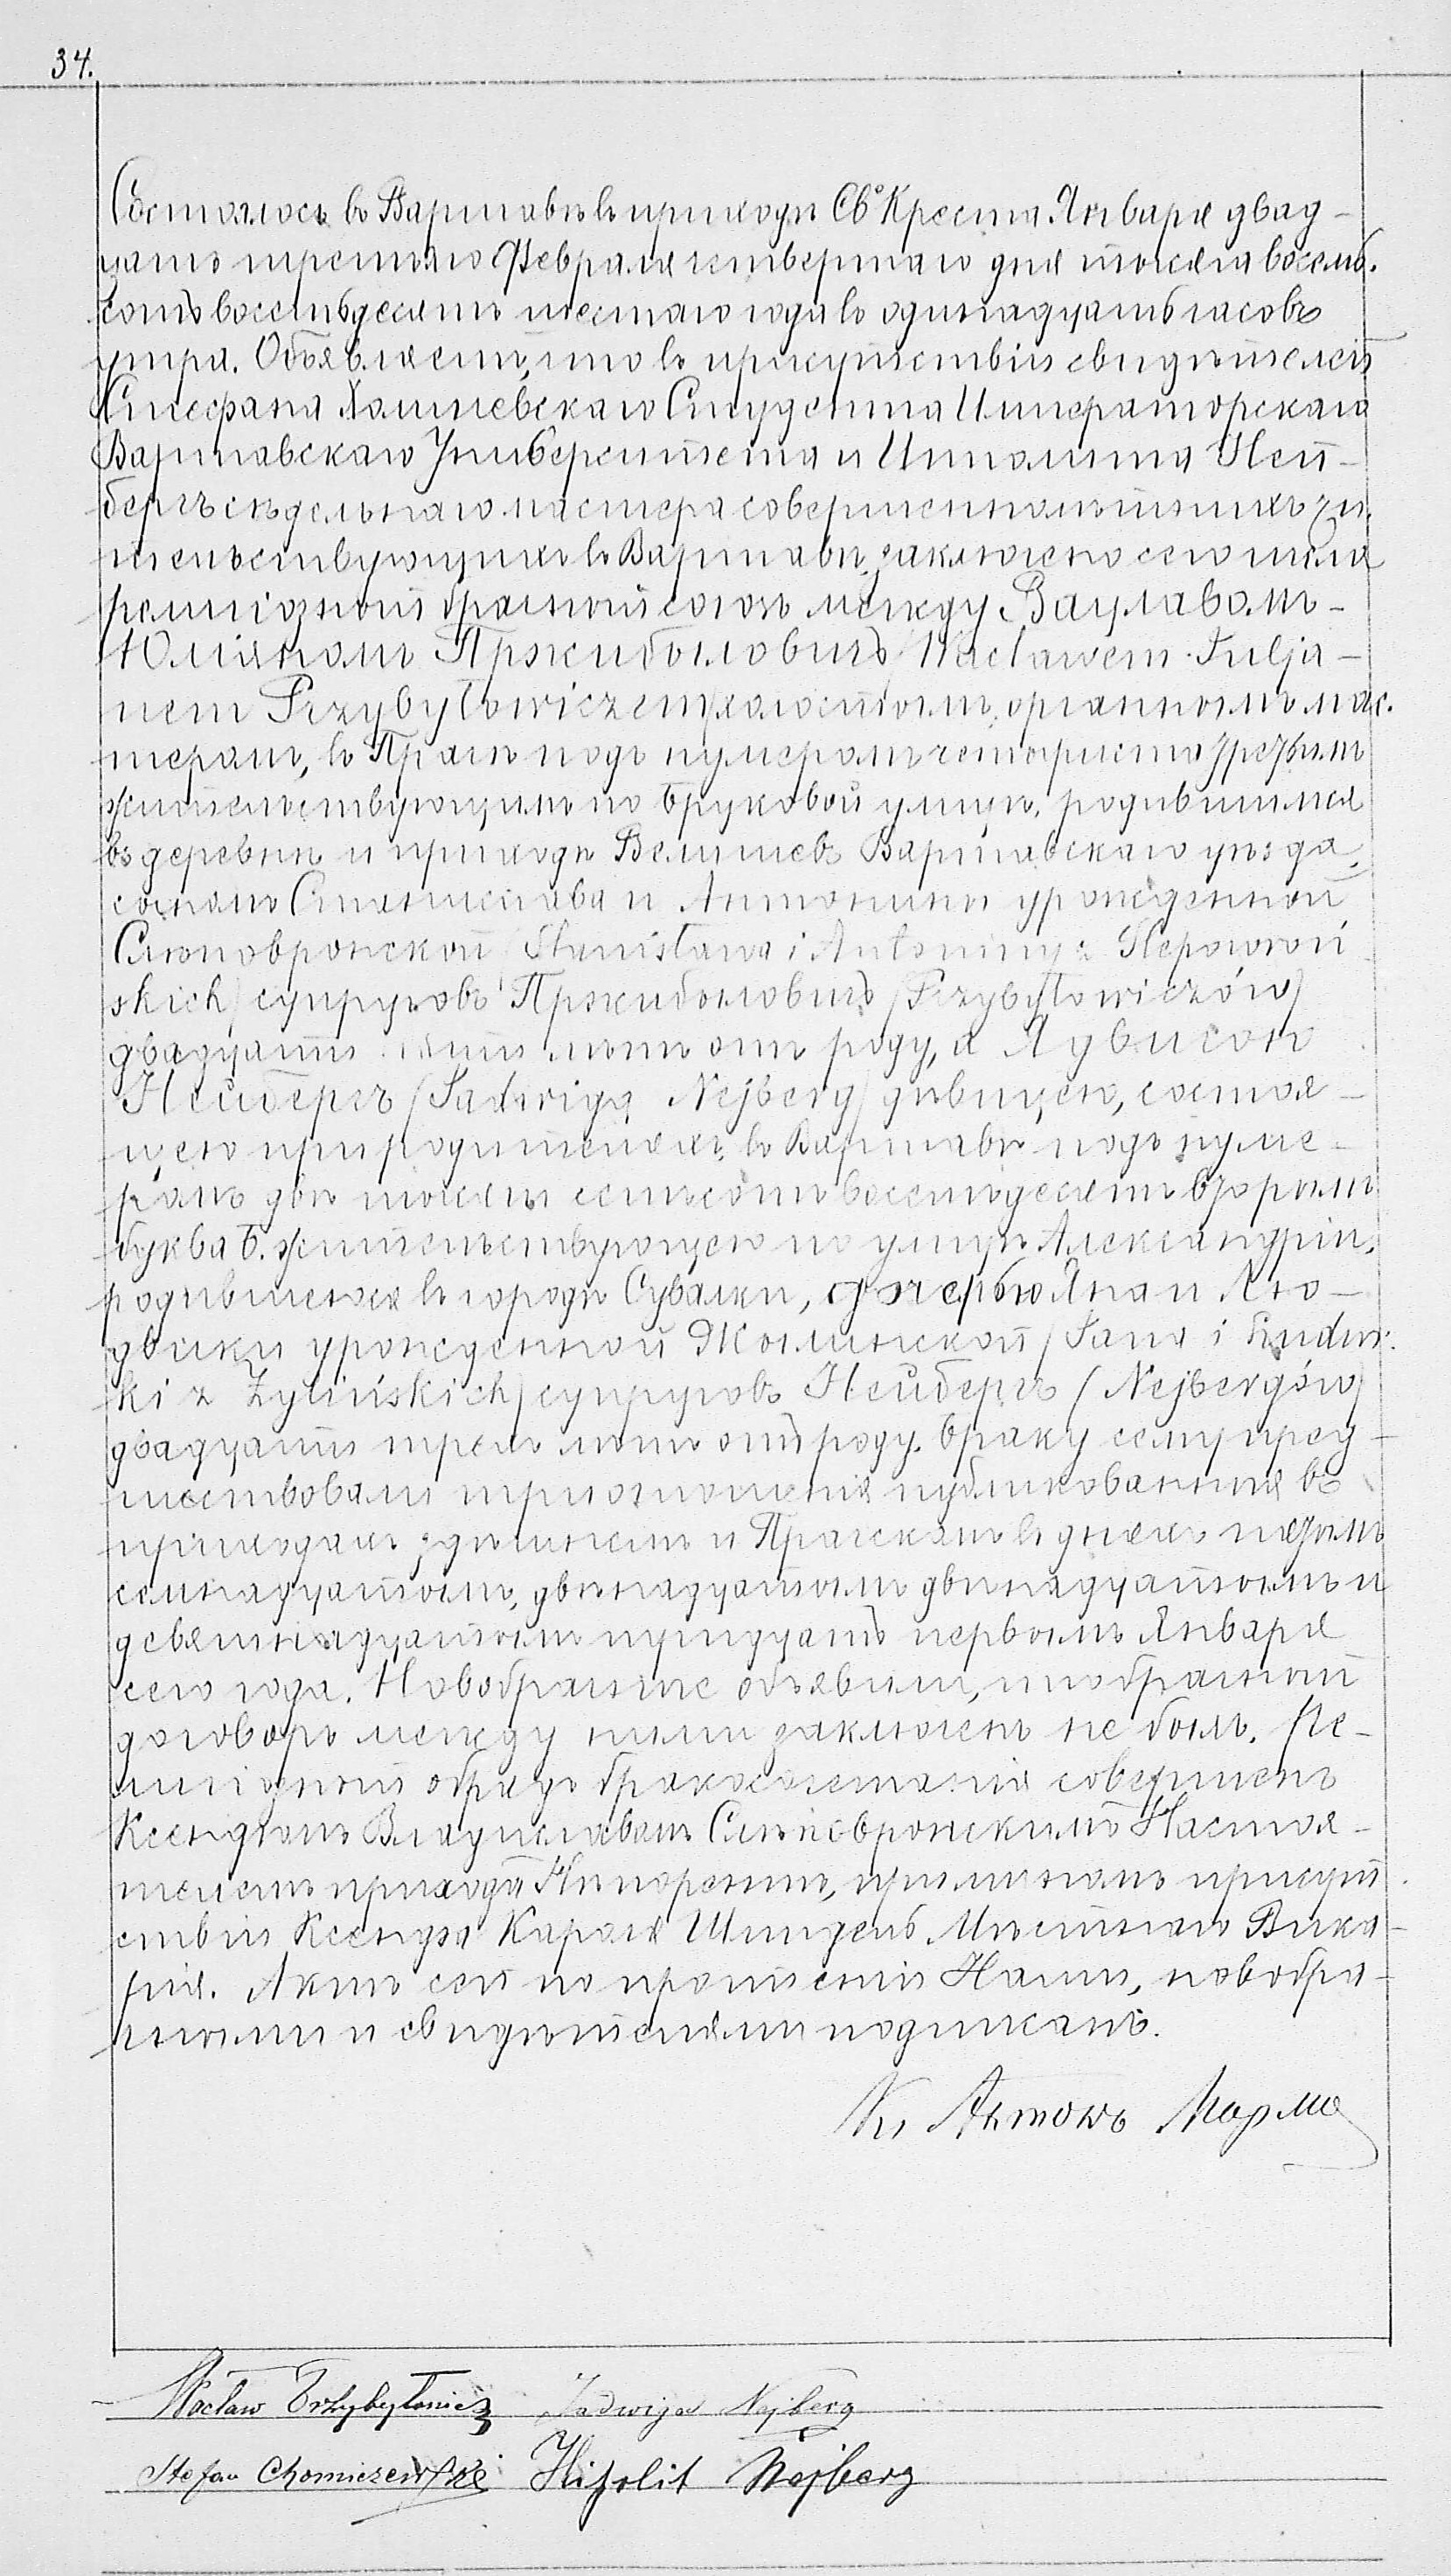 34.
Состоялось въ Варшавѣ въ приходѣ Св. Креста Января двад-
цать третьяго /Февраля четвертаго дня тысяча восемь.
сотъ восемьдесятъ шестаго года въ одинадцать часовъ
утра. Объявляемъ, что въ присутствіи свидѣтелей
Стефана Хомичевскаго Студента Императорскаго
Варшавскаго Университета и Ипполита Ней-
бергъ сѣдельнаго мастера совершеннолѣтнихъ жи-
тельствующихъ въ Варшавѣ, заключено сего числа
религіозный брачный союзъ между Вацлавомъ-
Юліяномъ Пржибыловичъ /Wacławem-Julja-
nem Przybyłowiczem/ холостымъ, органнымъ мас-
теромъ, въ Прагѣ подъ нумеромъ четыриста третьимъ
жительствующимъ по Бруковой улицѣ, родившимся
въ деревнѣ и приходѣ Велишевъ Варшавскаго уѣзда,
сыномъ Станислава и Антонины урожденной
Скповронской /Stanisława i Antoniny z Skporoń
skich/ супруговъ Пржибыловичъ /Przybyłowiczów/
двадцати пяти лѣтъ отъ роду, а Ядвигою
Нейбергъ /Jadwigą Nejberg/ дѣвицею, состоя-
щею при родителяхъ въ Варшавѣ подъ нуме-
ромъ двѣ тысячи семьсотъ восемьдесятъ вторымъ
буква б. жительствующею по улицѣ Александріи,
родившеюся въ городѣ Сувалки, дочерью Яна и Лю-
двики урожденной Жилинской /Jana i Ludwi-
ki z Żylińskich/ супруговъ Нейбергъ /Nejbergów/
двадцати трехъ лѣтъ отъ роду. Браку сему пред-
шествовали три оглашенія публикованныя въ
приходахъ здѣшнемъ и Пражскомъ въ дняхъ пятомъ
семнадцатомъ, двѣнадцатомъ двѣнадцатомъ и
девятнадцатомъ тридцать первомъ Января
сего года. Новобрачные объявили, что брачный
договоръ между ними заключенъ не былъ. Ре-
лигіозный обрядъ бракосочетанія совершенъ
Ксендзомъ Владиславомъ Скповронскимъ Настоя-
телемъ прихода Непорентъ, при личномъ присут
ствіи Ксендза Кароля Шмидель Мѣстнаго Вика-
рія. Актъ сей по прочтеніи Нами, новобра-
чными и свидѣтелями подписанъ.
Кс Антонъ
Wacław Przybyłowicz Jadwiga Nejberg
Stefan Chomiczewski Hipolit Nejberg